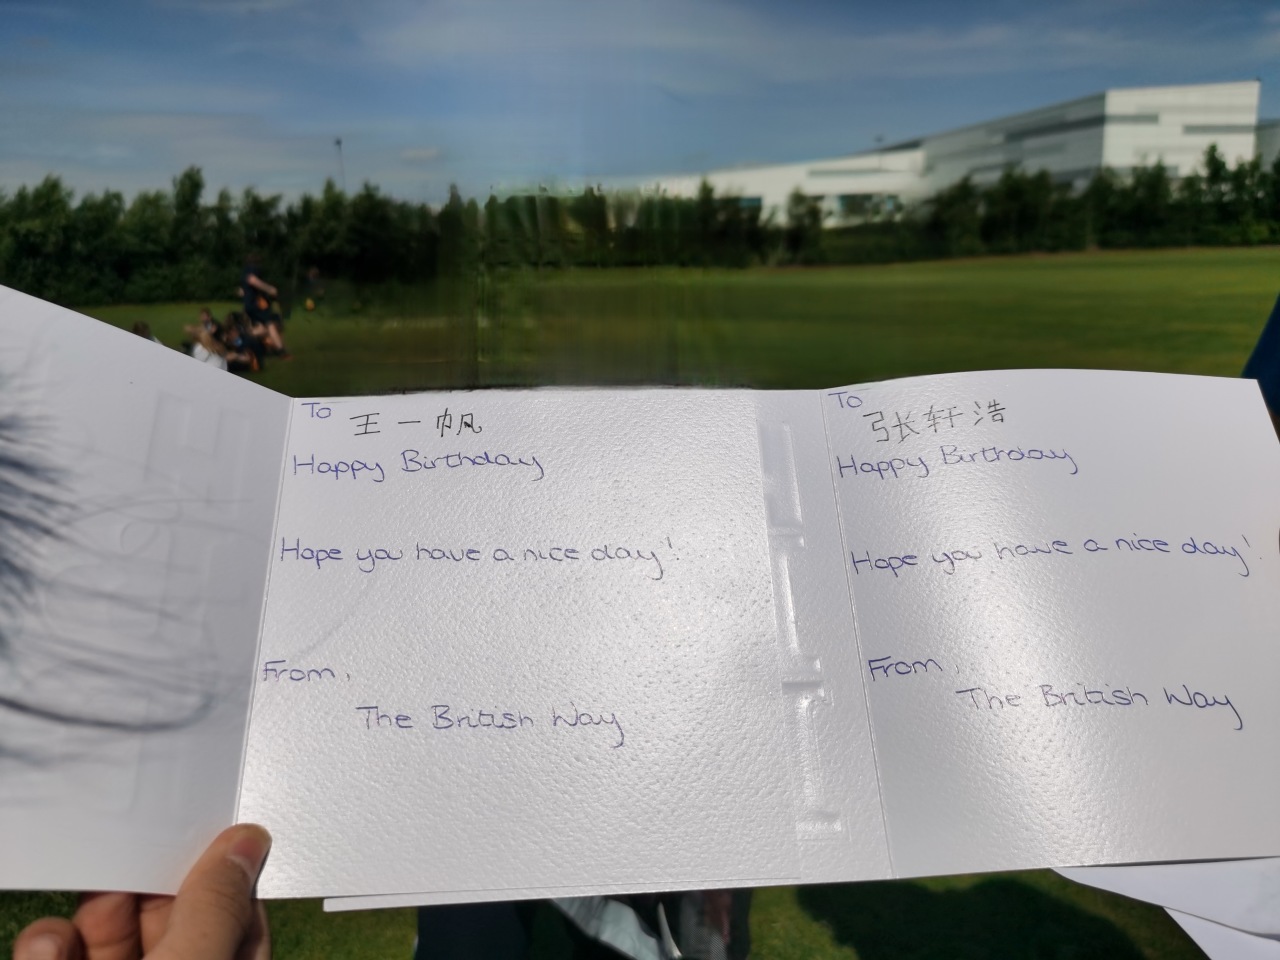 To 王一帆
Happy Birthday
Hope you have a nice day!
From,
The British Way
To 张轩浩
Happy Birthday
Hope you have a nice day!
From,
The British Way